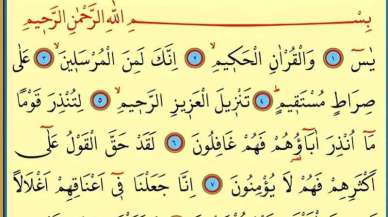 بِسْمِ اللّٰهِ الرَّحْمٰنِ الرَّح۪يمِ
يٰسٓ ١ وَالْقُرْاٰنِ الْحَك۪يمِۙ ٢ اِنَّكَ لَمِنَ الْمُرْسَل۪ينَۙ ٣ عَلٰى
صِرَاطٍ مُسْتَق۪يمٍۜ ٤ تَنْز۪يلَ الْعَز۪يزِ الرَّح۪يمِۙ ٥ لِتُنْذِرَ قَوْمًا
مَٓا اُنْذِرَ اٰبَٓاؤُ۬هُمْ فَهُمْ غَافِلُونَ ٦ لَقَدْ حَقَّ الْقَوْلُ عَلٰٓى
اَكْثَرِهِمْ فَهُمْ لَا يُؤْمِنُونَ ٧ اِنَّا جَعَلْنَا ف۪ٓي اَعْنَاقِهِمْ اَغْلَالًا